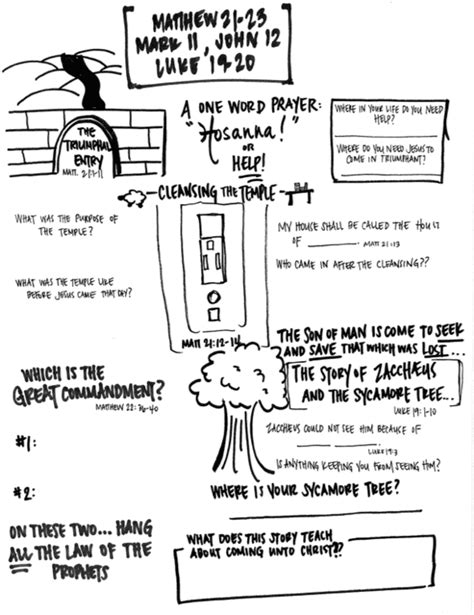 MATTHEW 21-23
MARK 11, JOHN 12
LUKE 19-20
THE
TRIUMPHAL
ENTRY
MATT. 21:1-11
A ONE WORD PRAYER:
"Hosanna!"
OR
HELP!
WHERE IN YOUR LIFE DO YOU NEED
HELP?
WHERE DO YOU NEED JESUS TO
COME IN TRIUMPHANT?
CLEANSING THE TEMPLE
WHAT WAS THE PURPOSE OF
THE TEMPLE?
WHAT WAS THE TEMPLE LIKE
BEFORE JESUS CAME THAT DAY?
MATT 21:12-14
MY HOUSE SHALL BE CALLED THE HOUSE
OF ________. MATT 21:13
WHO CAME IN AFTER THE CLEANSING??
THE SON OF MAN IS COME TO SEEK
AND SAVE THAT WHICH WAS LOST...
THE STORY OF ZACCHÆUS
AND THE SYCAMORE TREE...
LUKE 19:1-10
ZACCHÆUS COULD NOT SEE HIM BECAUSE OF
________ ________. LUKE 19:3
IS ANYTHING KEEPING YOU FROM SEEING HIM?
WHERE IS YOUR SYCAMORE TREE?
WHICH IS THE
GREAT COMMANDMENT?
MATTHEW 22:36-40
#1:
#2:
ON THESE TWO... HANG
ALL THE LAW OF THE
PROPHETS
WHAT DOES THIS STORY TEACH
ABOUT COMING UNTO CHRIST??